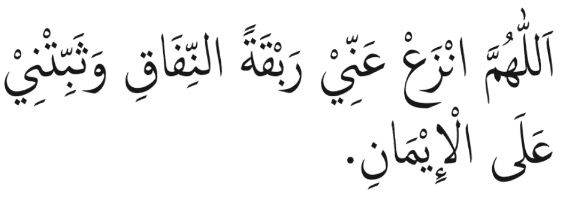 اَللّٰهُمَّ انْزَعْ عَنِّيْ رَبْقَةً النِّفَاقِ وَثَبِّتْنِيْ
عَلَى الْإِيْمَانِ.